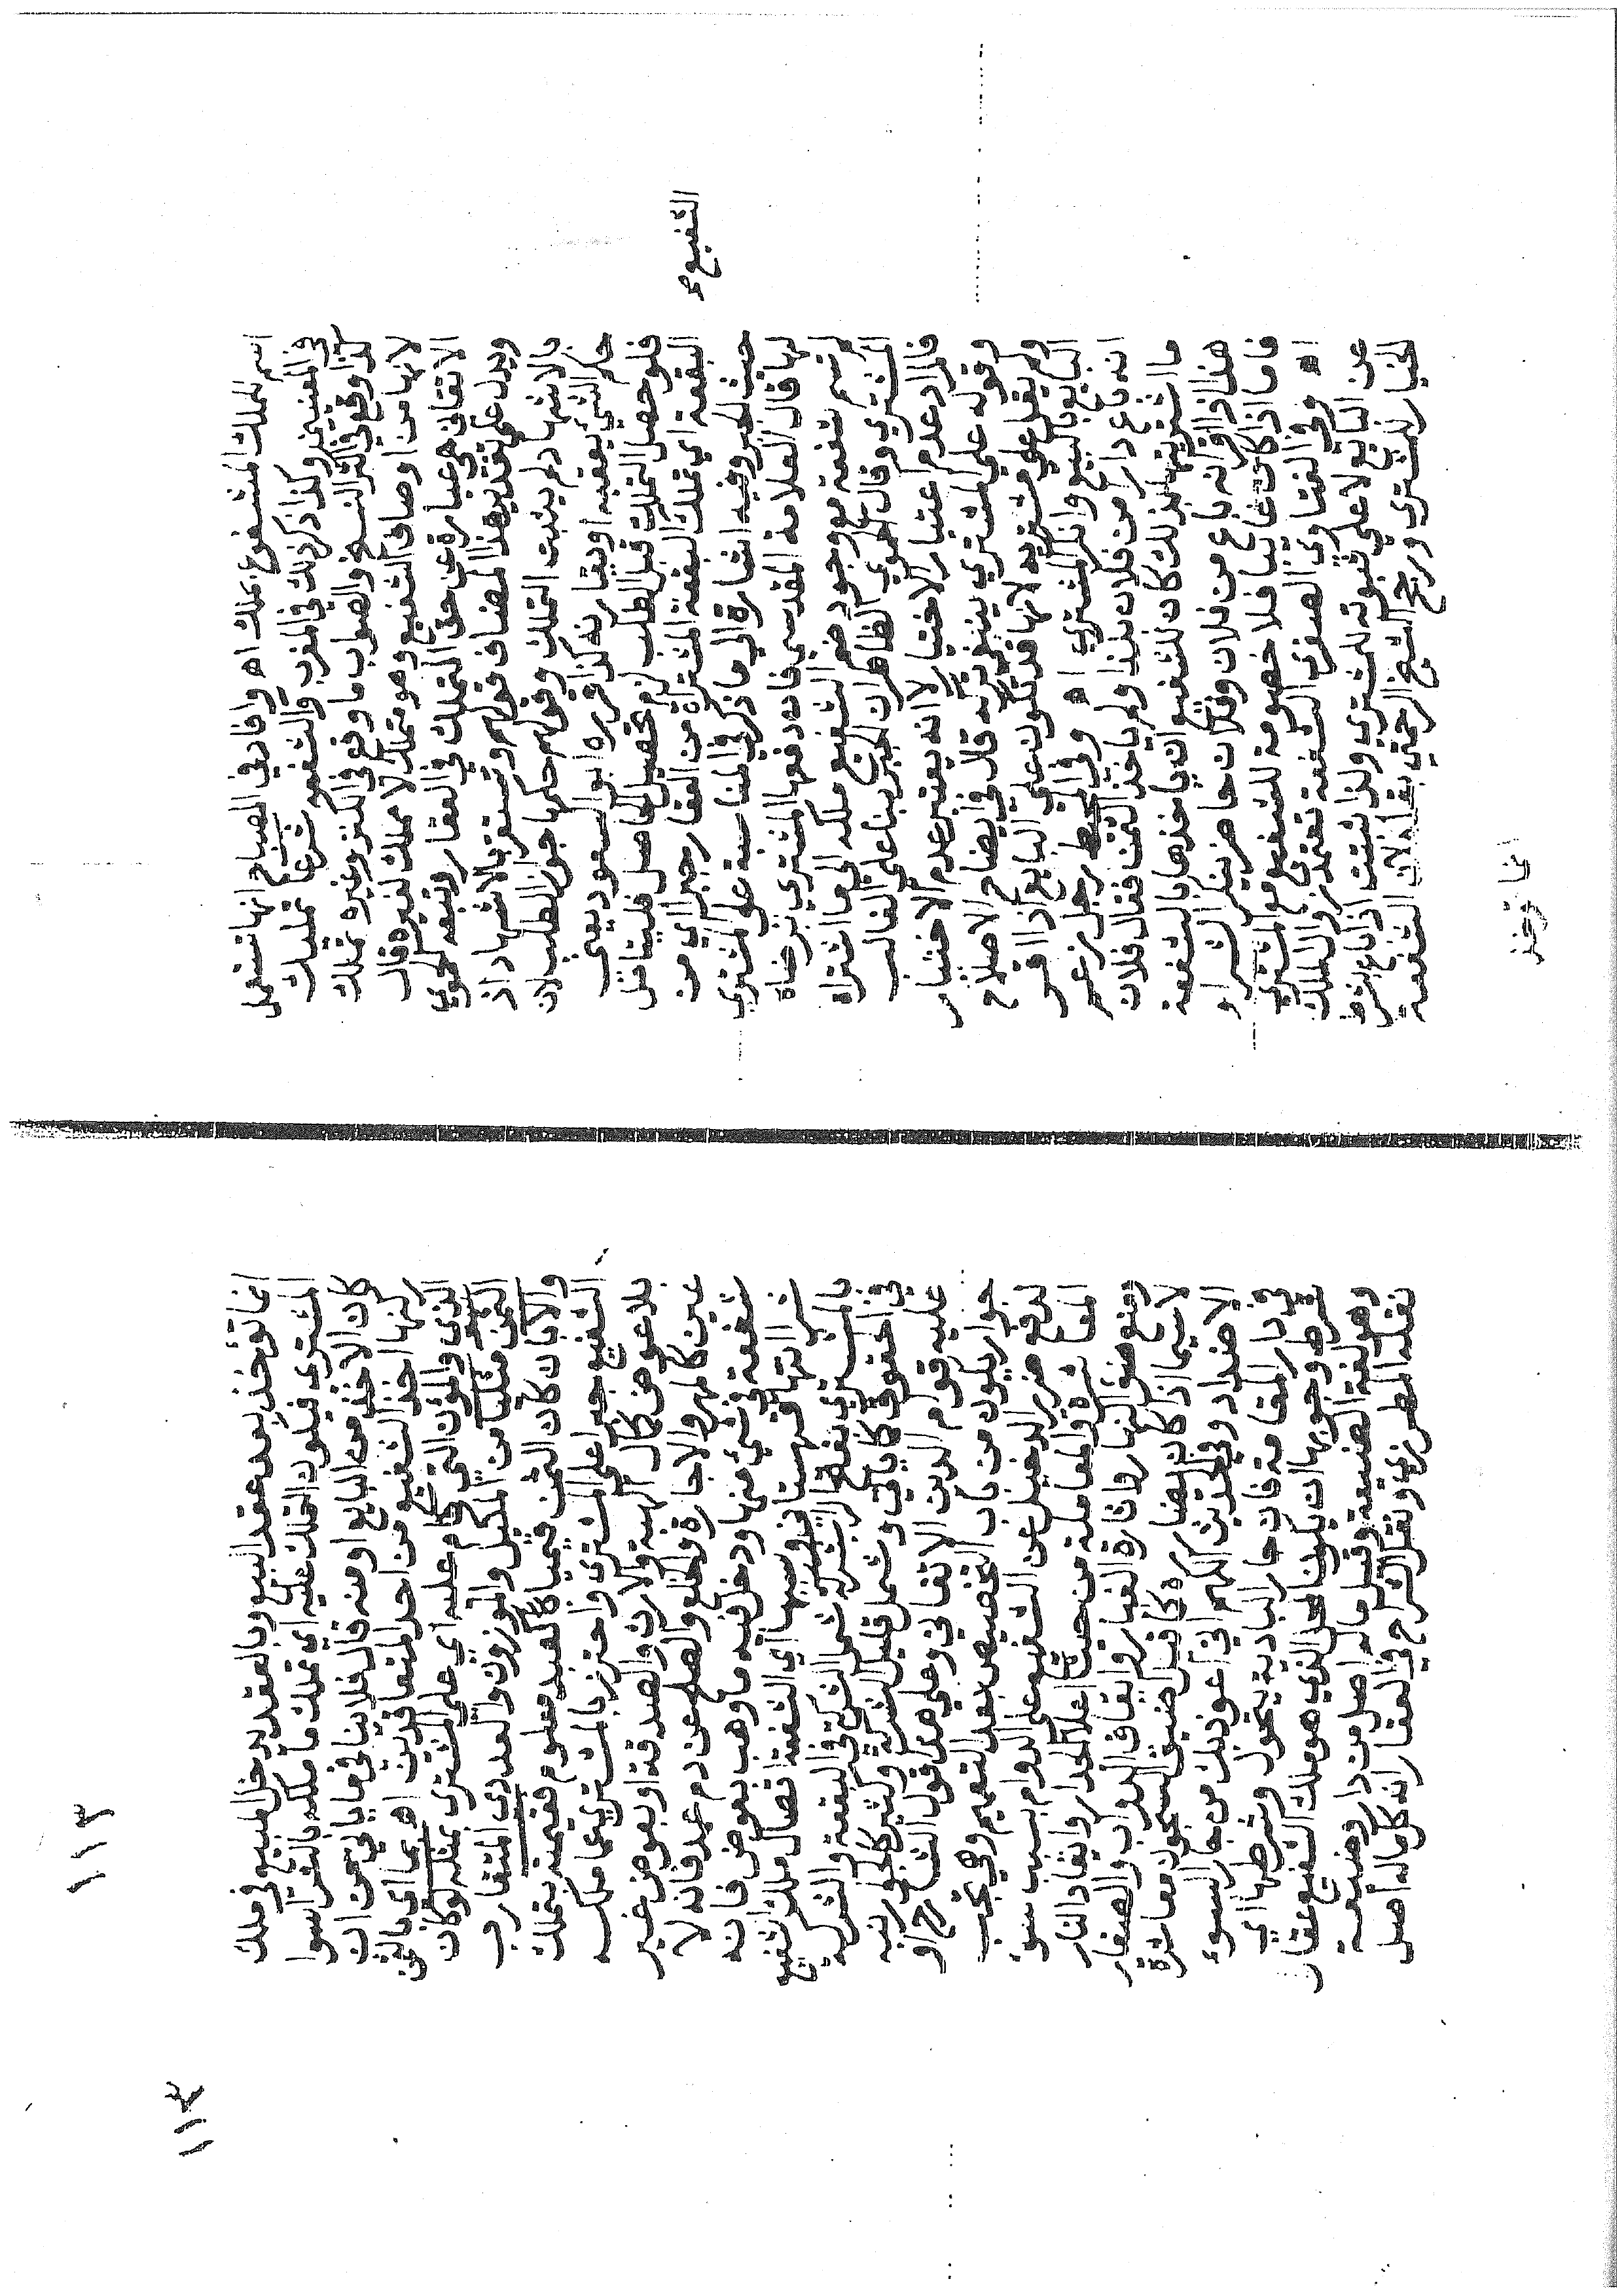 اسم للملك المشفوع بملك اه وافاد في المصباح انها تستعمل
في المعنيين وكذا ذكر ذلك في المغرب والشفعة شرعا تمليك
كذا وقع في اكثر النسخ والصواب ما وقع في الكنز وغيره تملك
لانها من اوصاف الشفيع وهو متملك لا مملك لغيره قال
الاتقاني هي عبارة عن حق التملك في العقار وتبعه الحموي
ويدل على تقدير هذا المضاف قولهم وتستقر بالاشهاد اذ
بالاشهاد لم يثبت التملك وقولهم حكمها جواز الطلب لان
حكم الشيء يعقبه او يقارنه كذا قرره ابو السعود يعني
فلو حصل التملك قبل الطلب لزم تحصيل الحاصل فليتامل
البقعة اي تملك البقعة المشتراة من العقار جبرا اي من
حيث الجبر وفيه اشارة الي ما ذكر في المناسبة على المشتري
لها قال العلامة المقدسي فان دفعها المشتري برضاه
لم تسم شفعة مع وجود ضم الشفيع ملكه الى ما اشتراه
المشتري وقال الحموي الظاهر ان الجبر بناء على الغالب
فالمراد عدم اعتبار الاختيار لا انه يعتبر عدم الاختيار
وقوله علي المشتري ينبغي تركه قال في ايضاح الاصلاح
ولم يقل علي مشتريه لانها قد تكون علي البايع اذا اقر
البايع بالبيع وانكر المشتري اه وفي المحيط رجل زعم
انه باع دارا من فلان بكذا ولم ياخذ الثمن فقال فلان
ما اشتريتها بذلك كان للشفيع ان ياخذها بالشفعة
هذا اذا اقر انه باع من فلان وفلان حاضر ينكر الشراء
فاما اذا كان غائبا فلا خصومة للشفيع مع المشتري
اه وفي الفتاوي الصغري الشفعة تعتمد زوال الملك
عن البايع لا علي ثبوته للمشتري ولذا تثبت اذا باع بشرط
الخيار للمشتري ورجح الشيخ الرحمتي بقاءه لان الشفعة
الشفيع
انما توخذ
١١٣
١١٣
انما تؤخذ بعد عقد البيع وبالعقد يدخل المبيع في ملك
المشتري فيكون التملك عليه اي تملك ما ملكه بالشرا سوا
كان الاخذ من البايع او منه قال فلا ينافي ما ياتي من ان
لكنها اخذ الشفيع من احد المتعاقدين اه بما اي بالثمن
الذي والمؤن التي قام عليه اي علي المشتري بمثله لو كان
الثمن مثليا من المكيل والموزون والعددي المتقارب
والا بان كان الثمن قيميا كالعبد معلوم فقيمته بتملك
الشفيع جبرا على المشتري واحترز بالمشتري عما ملكه
بلا عوض كال الهبة والارث والصدقة او بعوض غير
عين كالمهر والاجارة والخلع والصلح عن دم عمد فانه لا
شفعة في شيء منها ودخل فيه ما وهب بعوض فانه
شرا انتها قهستاني وسببها اي الشفعة اتصال ملك الشفيع
بالمشتري بفتح الراء بشركة شمل الشركة في البقعة والشركة
في الحقوق كما ياتي وشمل قليل الشركة وكثيرها كالجوار نبه
عليه قوام الدين الاتقاني وعلي هذا قول الشارح او
جوار يكون من باب التخصيص بعد التعميم وهي تجب
لدفع ضرر الدخيل عن الشفيع علي الدوام بسبب سوء
المعاشرة والمعاملة من حيث اعلاء الجدار وايقاد النار
ومنع ضوء النهار واثارة الغبار وايقاف الدواب والصغار
لاسيما اذا كان يضاره كما قيل اضيق السجون معاشرة
الاضداد وفي الحديث اللهم اني اعوذ بك من جار السوء
في دار المقامة فان جار البادية يتحول وشرطها اي
شرط وجوبها ان يكون المحل الذي هو ملك الشفيع عقار
وهو لغة الضيعة وقيل ماله اصل من دار وضيعة
نقله المطرزي ونقل الشراح في العقار انه كل ماله اصل